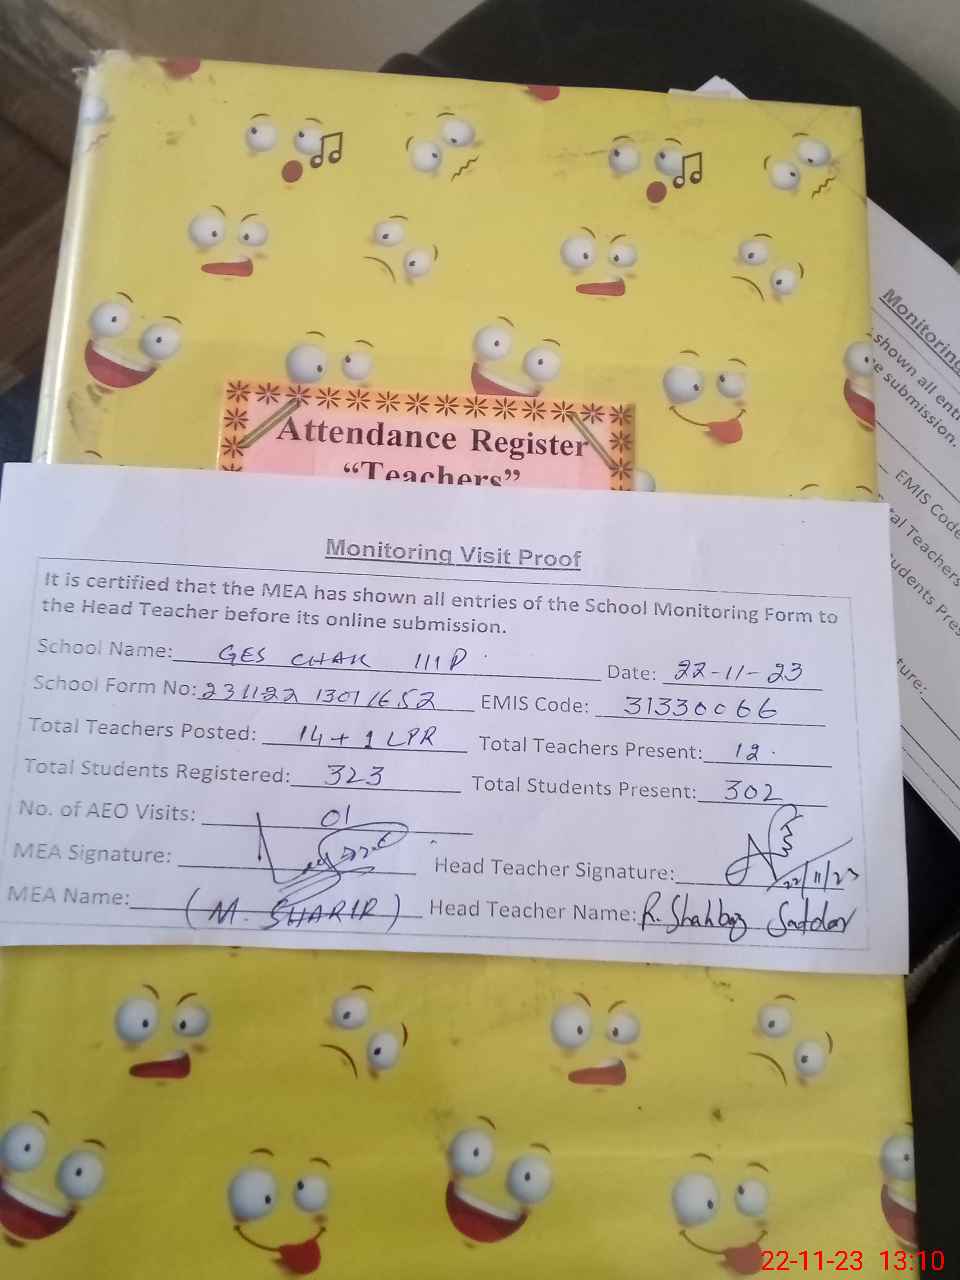 Attendance Register
“Teachers”
Monitoring Visit Proof
It is certified that the MEA has shown all entries of the School Monitoring Form to
the Head Teacher before its online submission.
School Name: GES CHAK 111P. Date: 22-11-23
School Form No: 231122 1301 1652 EMIS Code: 31330066
Total Teachers Posted: 14 + 1 LPR Total Teachers Present: 12.
Total Students Registered: 323 Total Students Present: 302
No. of AEO Visits: 01
MEA Signature: Head Teacher Signature: 22/11/23
MEA Name: (M. SHARIF) Head Teacher Name: R. Shahbaz
Monitoring
shown all
submission.
EMIS Code
Teachers
22-11-23 13:10